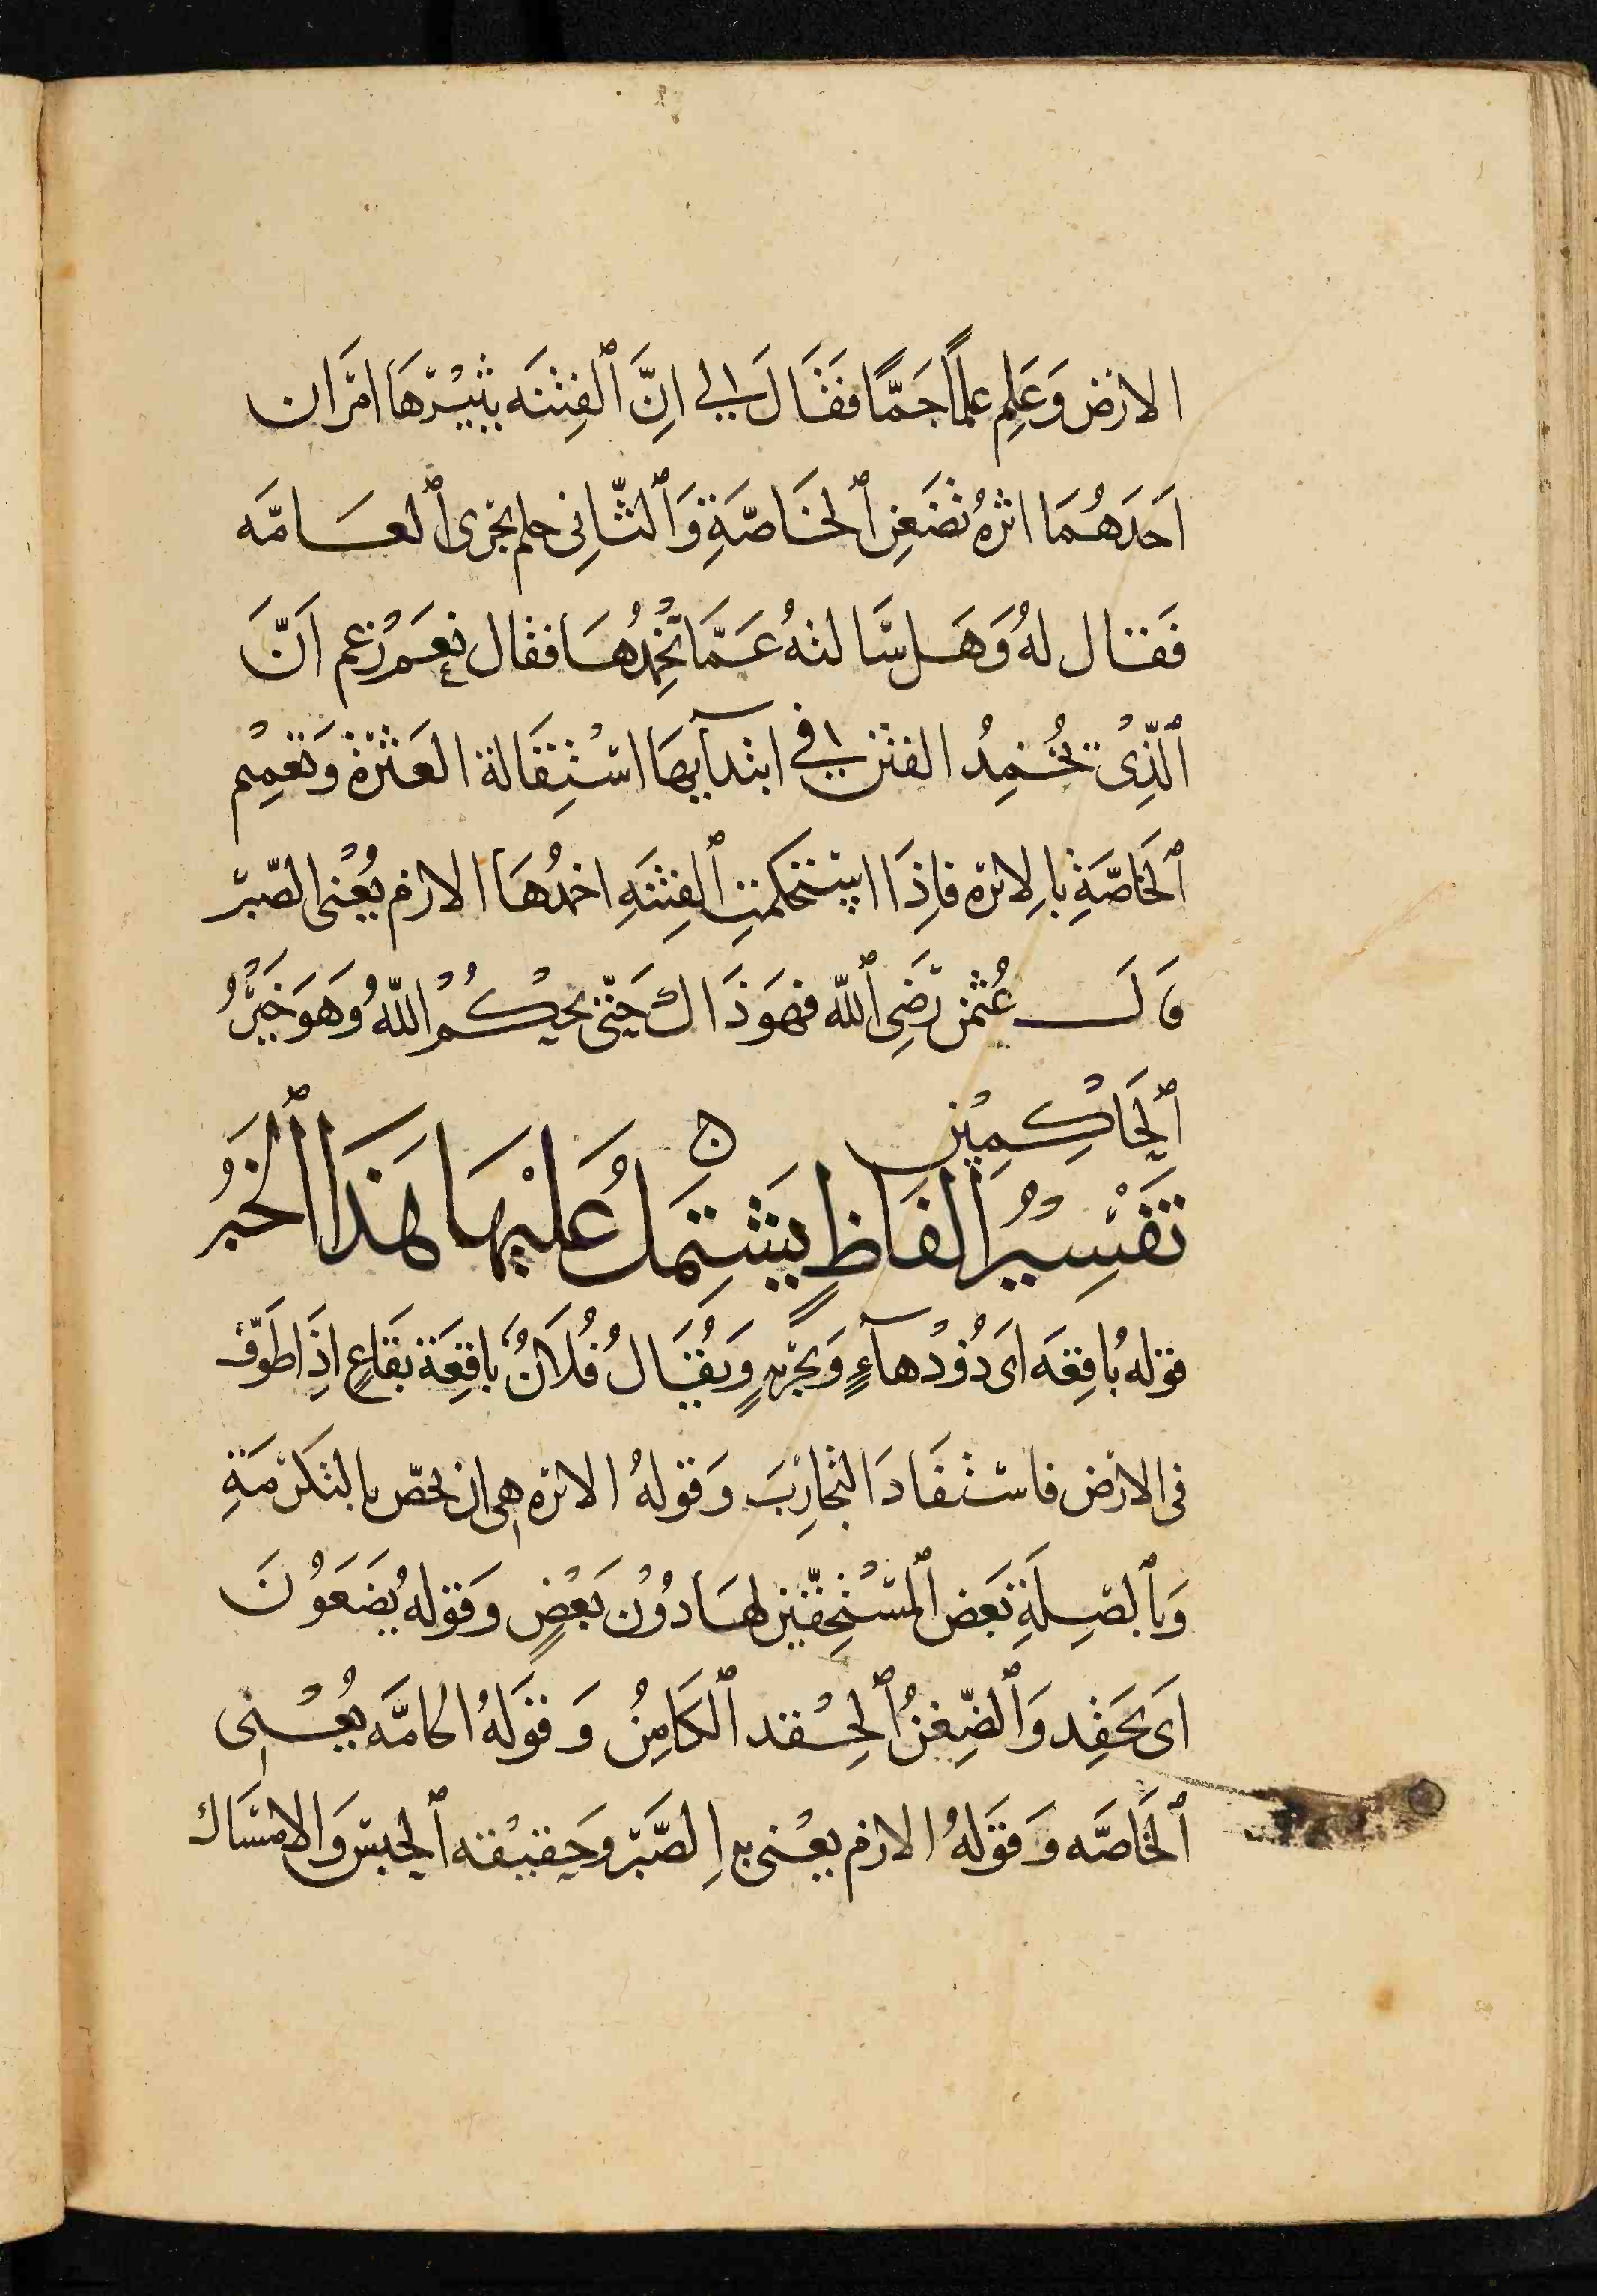 الارض وَعَلِم علماً جَمًّا فقَالَ لي اِنَّ ٱلفِتنَه يثيرهَا امرَان
اَحَدهُمَا اثرهُ تضَغِن ٱلخَاصَّةِ وَٱلثّانِى حلم يجَرى ٱلعَامّه
فَقال لهُ وَهَل سَالتهُ عَمَّا يُخمِدُهَا فقال نعَم زعم اَنّ
ٱلّذِىْ تُخْمِدُ الفتن في ابتدآيهَا اسْتِقَالة العَثرة وَتعْمِيم
ٱلخَاصَّةِ بالاثرَه فاِذَا استحكمت ٱلفِتنَهِ اخمدُهَا الازم يُعْنى الصّبر
قَالَ عُثمن رَضِى ٱللّه فهوَ ذَاك حَتّى يحْكُمُ اللّهُ وَهوَ خَيرُ
ٱلحَاكِمِين
تَفْسِيرُ الفَاظٍ يَشتِمَلُ عُليْهَا هَذَا ٱلخَبَرُ
قوله بُاقِعَه اى دُوْدهآءٍ وَتجربهٍ وَيقُالُ فُلَانٌ باقِعَة بقَاعِ اذِا طَوّف
فى الارض فاستفَادَ التجَارِبَ وَقوله الاثره هى ان يخصّ بالتكرمَةِ
وَبٱلصِلَةِ بَعض ٱلمسْتحِقّين لهَا دوُن بَعْضٍ وَقوله يُضَعَوُنَ
اىَ يحَقِد وَٱلضِّغنُ ٱلحِقد ٱلكَامِنُ وَقوَلهُ الحامَّه يُعْنى
ٱلخَاصّه وَقوَلهُ الازم يعْنى به اِلصَّبر وحَقيْقته ٱلحِبسَ وَالامسَاك